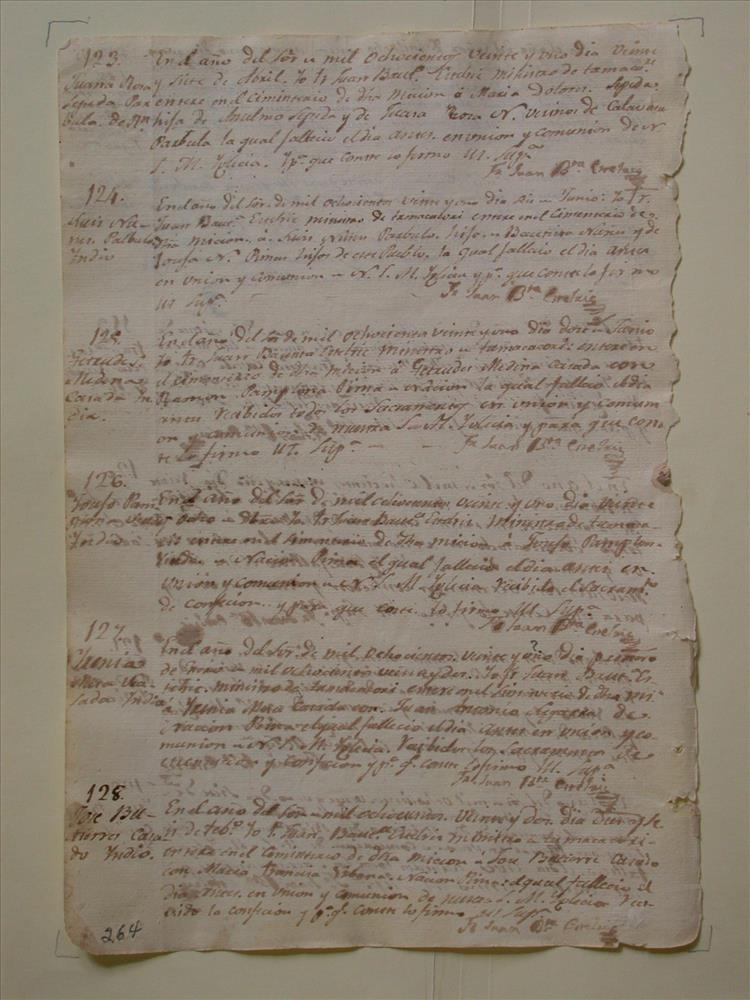 123.
Juana Rosa
Sepeda Par
bula.
En el año del Sōr. de mil Ochocientos veinte y uno dia veinte
y siete de Abril. Yo Fr. Juan Baut. Estelric ministro de tumaco.
enterre en el Ciminterio de dha Micion à Maria Dolores Sepeda.
hija de Anselmo Sepeda y de Juana Rosa N. Vecinos de Calabasa
Parbula la qual fallecio el dia antes. en union y comunion de N
S. M. Iglecia. Y pa. que conste lo firmo Ut. Supa.
Fr. Juan Bta. Estelric
124.
Luis Nu-
nes Parbulo
Indio
En el año del Sōr. de mil Ochocientos veinte y uno dia seis de Junio. Yo Fr.
Juan Baut. Estelric ministro de tumacacori enterre en el Ciminterio de
dha micion. à Luis Nuñes Parbulo. hijo de Bautista Nuñes y de
Josefa N. Pimas hijos de este Pueblo. la qual fallecio el dia antes
en union y comunion de N. S. M. Iglecia y pa. que conste lo firmo
Ut Supa.
Fr. Juan Bta. Estelric
125.
Getrudes
Medina
Casada In
dia.
En el año del Sōr de mil Ochocientos veinte y uno dia doce de Junio
Yo Fr. Juan Bautista Estelric ministro de tumacacori enterre en
el cimenterio de dha micion à Getrudes Medina Casada con
Ramon Pamplona Pima de Nacion la qual fallecio el dia
antes recibidos todos los Sacramentos en union y comuni
on de nuestra S. M. Iglecia y para que cons
te lo firmo Ut. Supa.
Fr. Juan Bta. Estelric
126.
Josefa Pam
Indio
En el año del Sōr. de mil ochocientos veinte y uno dia veinte
y Ocho de Yo Fr. Juan Baut. Estelric Ministro de tumaca-
cori enterre en el Cimenterio de dha micion à Josefa Pamplon
de Nacion Pima el qual fallecio el dia antes en
Union y comunion de N. S. M. Iglecia recibido el Sacramto.
de confecion. y para que conste lo firmo Ut. Supa.
Fr. Juan Bta. Estelric
127.
Casada India
En el año del Sōr. de mil Ochocientos veinte y uno dia primero
de Enero de mil ochocientos veinte y dos. Yo Fr. Juan Baut. Es
telric. ministro de tumacacori enterre en el Siminterio de dha mi
Casada con Juan Antonio de
Nacion Pima el qual fallecio el dia antes en union y co-
munion de N. S. M. Iglecia. recibidos los Sacramentos de
y confecion y pa. q. conste lo firmo Ut. Supa.
Fr. Juan Bta. Estelric
128.
Jose Bu-
tierres Casa-
do Indio.
En el año del Sōr de mil ochocientos. veinte y dos. dia
de Febo. Yo Fr. Juan Bauta. Estelric Ministro de tumacacori
enterre en el Cimenterio de dha micion à Jose Butierre Casado
con Maria Francisca de Nacion Pima. el qual fallecio el
dia antes. en Union y Comunion de nuestra S. M. Iglecia reci
vido la confecion y pa. q. conste lo firmo Ut Supa.
Fr. Juan Bta. Estelric
264